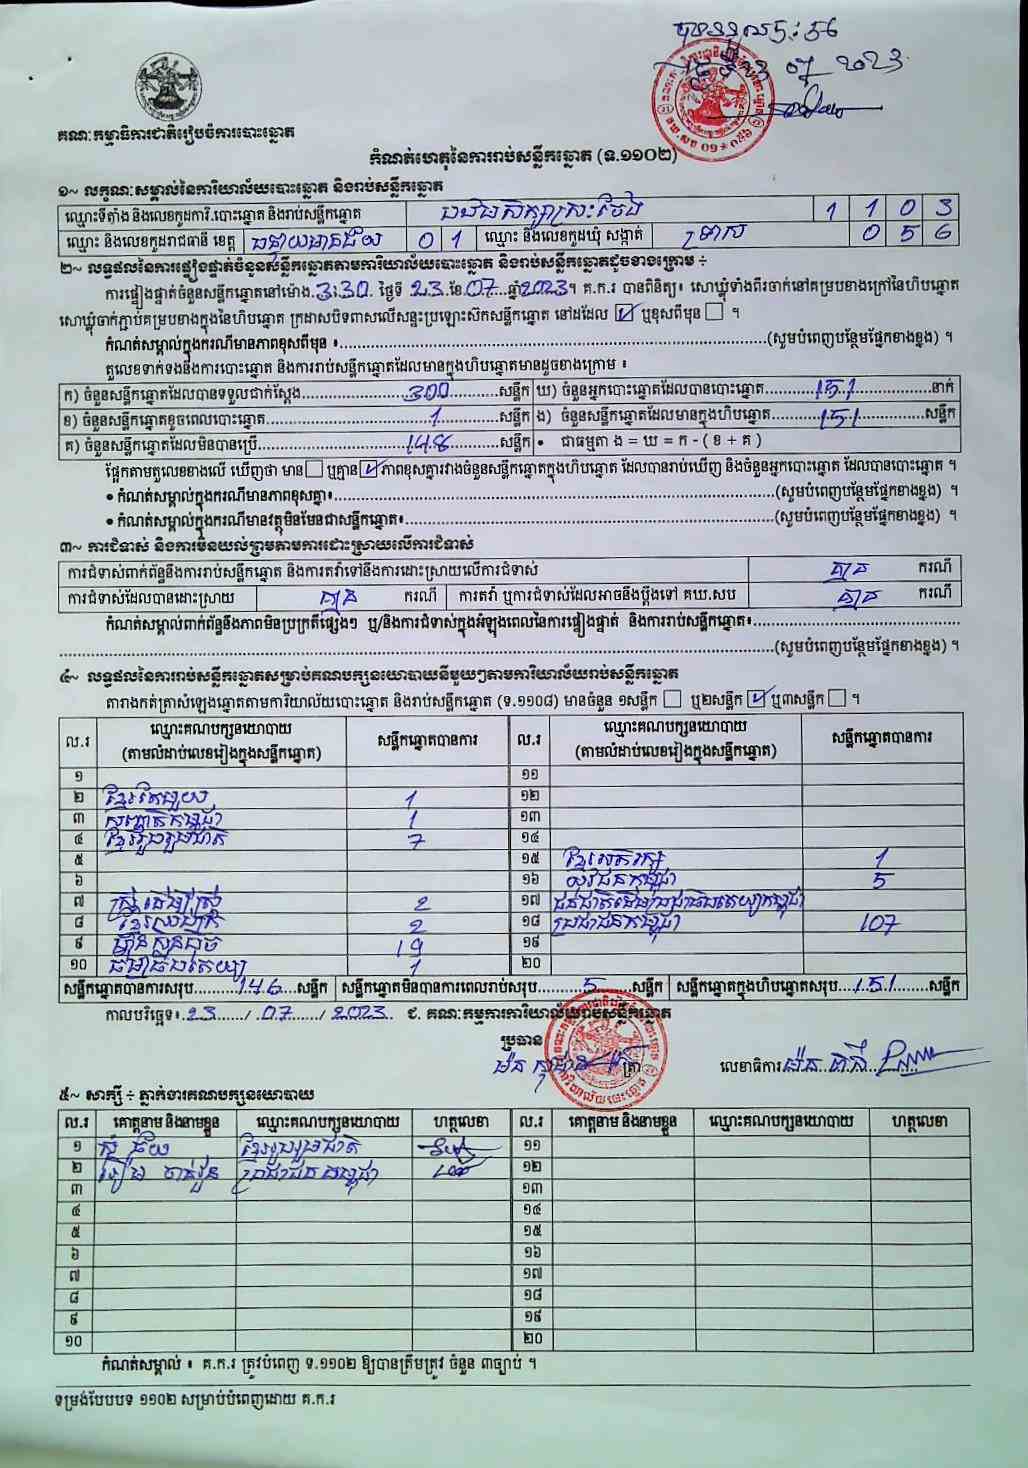 បានទទួល ៥:៥6
គណៈកម្មាធិការជាតិរៀបចំការបោះឆ្នោត
កំណត់ហេតុនៃការរាប់សន្លឹកឆ្នោត (ទ.១១០២)
១~ លក្ខណៈសម្គាល់នៃការិយាល័យបោះឆ្នោត និងរាប់សន្លឹកឆ្នោត
ឈ្មោះទីតាំង និងលេខកូដការិ.បោះឆ្នោត និងរាប់សន្លឹកឆ្នោត 1 1 0 3
ឈ្មោះ និងលេខកូដរាជធានី ខេត្ត បន្ទាយមានជ័យ 0 1 ឈ្មោះ និងលេខកូដឃុំ សង្កាត់ 0 5 6
២~ លទ្ធផលនៃការផ្ទៀងផ្ទាត់ចំនួនសន្លឹកឆ្នោតតាមការិយាល័យបោះឆ្នោត និងរាប់សន្លឹកឆ្នោតដូចខាងក្រោម ÷
ការផ្ទៀងផ្ទាត់ចំនួនសន្លឹកឆ្នោតនៅម៉ោង 3:30 ថ្ងៃទី 23 ខែ 07 ឆ្នាំ 2023។ គ.ក.រ បានពិនិត្យ៖ សោឃ្លុំទាំងពីរចាក់នៅគម្របខាងក្រៅនៃហិបឆ្នោត
សោឃ្លុំចាក់ភ្ជាប់គម្របខាងក្នុងនៃហិបឆ្នោត ក្រដាសបិទពាសលើសន្ទះប្រឡោះសិកសន្លឹកឆ្នោត នៅដដែល ☑ ឬខុសពីមុន ☐ ។
កំណត់សម្គាល់ក្នុងករណីមានភាពខុសពីមុន ៖ (សូមបំពេញបន្ថែមផ្នែកខាងខ្នង) ។
តួលេខទាក់ទងនឹងការបោះឆ្នោត និងការរាប់សន្លឹកឆ្នោតដែលមានក្នុងហិបឆ្នោតមានដូចខាងក្រោម ៖
ក) ចំនួនសន្លឹកឆ្នោតដែលបានទទួលជាក់ស្តែង 300 សន្លឹក ឃ) ចំនួនអ្នកបោះឆ្នោតដែលបានបោះឆ្នោត 151 នាក់
ខ) ចំនួនសន្លឹកឆ្នោតខូចពេលបោះឆ្នោត 1 សន្លឹក ង) ចំនួនសន្លឹកឆ្នោតដែលមានក្នុងហិបឆ្នោត 151 សន្លឹក
គ) ចំនួនសន្លឹកឆ្នោតដែលមិនបានប្រើ 148 សន្លឹក • ជាធម្មតា ង = ឃ = ក - ( ខ + គ )
ផ្អែកតាមតួលេខខាងលើ ឃើញថា មាន ☐ ឬគ្មាន ☑ ភាពខុសគ្នារវាងចំនួនសន្លឹកឆ្នោតក្នុងហិបឆ្នោត ដែលបានរាប់ឃើញ និងចំនួនអ្នកបោះឆ្នោត ដែលបានបោះឆ្នោត ។
• កំណត់សម្គាល់ក្នុងករណីមានភាពខុសគ្នា៖ (សូមបំពេញបន្ថែមផ្នែកខាងខ្នង) ។
• កំណត់សម្គាល់ក្នុងករណីមានវត្ថុមិនមែនជាសន្លឹកឆ្នោត៖ (សូមបំពេញបន្ថែមផ្នែកខាងខ្នង) ។
៣~ ការជំទាស់ និងការមិនយល់ព្រមតាមការដោះស្រាយលើការជំទាស់
ការជំទាស់ពាក់ព័ន្ធនឹងការរាប់សន្លឹកឆ្នោត និងការតវ៉ាទៅនឹងការដោះស្រាយលើការជំទាស់ គ្មាន ករណី
ការជំទាស់ដែលបានដោះស្រាយ គ្មាន ករណី ការតវ៉ា ឬការជំទាស់ដែលអាចនឹងប្តឹងទៅ គឃ.សប គ្មាន ករណី
កំណត់សម្គាល់ពាក់ព័ន្ធនឹងភាពមិនប្រក្រតីផ្សេងៗ ឬ/និងការជំទាស់ក្នុងអំឡុងពេលនៃការផ្ទៀងផ្ទាត់ និងការរាប់សន្លឹកឆ្នោត៖
(សូមបំពេញបន្ថែមផ្នែកខាងខ្នង) ។
៤~ លទ្ធផលនៃការរាប់សន្លឹកឆ្នោតសម្រាប់គណបក្សនយោបាយនីមួយៗតាមការិយាល័យរាប់សន្លឹកឆ្នោត
តារាងកត់ត្រាសំឡេងឆ្នោតតាមការិយាល័យបោះឆ្នោត និងរាប់សន្លឹកឆ្នោត (ទ.១១០៨) មានចំនួន ១សន្លឹក ☐ ឬ២សន្លឹក ☑ ឬ៣សន្លឹក ☐ ។
ល.រ ឈ្មោះគណបក្សនយោបាយ (តាមលំដាប់លេខរៀងក្នុងសន្លឹកឆ្នោត) សន្លឹកឆ្នោតបានការ ល.រ ឈ្មោះគណបក្សនយោបាយ (តាមលំដាប់លេខរៀងក្នុងសន្លឹកឆ្នោត) សន្លឹកឆ្នោតបានការ
១ ១១
២ ខ្មែរតែមួយ 1 ១២
៣ សញ្ជាតិកម្ពុជា 1 ១៣
៤ ខ្មែររួបរួមជាតិ 7 ១៤
៥ ១៥ ខ្មែរអភិរក្ស 1
៦ ១៦ យុវជនកម្ពុជា 5
៧ ស្រ្តីដើម្បីស្រ្តី 2 ១៧ ជនជាតិដើមប្រជាធិបតេយ្យកម្ពុជា
៨ 2 ១៨ ប្រជាជនកម្ពុជា 107
៩ ហ្វ៊ុនស៊ិនប៉ិច 19 ១៩
១០ 1 ២០
សន្លឹកឆ្នោតបានការសរុប 146 សន្លឹក សន្លឹកឆ្នោតមិនបានការពេលរាប់សរុប 5 សន្លឹក សន្លឹកឆ្នោតក្នុងហិបឆ្នោតសរុប 151 សន្លឹក
កាលបរិច្ឆេទ៖ 23 / 07 / 2023 ជ. គណៈកម្មការការិយាល័យរាប់សន្លឹកឆ្នោត
ប្រធាន
ត្រា លេខាធិការ
៥~ សាក្សី ÷ ភ្នាក់ងារគណបក្សនយោបាយ
ល.រ គោត្តនាម និងនាមខ្លួន ឈ្មោះគណបក្សនយោបាយ ហត្ថលេខា ល.រ គោត្តនាម និងនាមខ្លួន ឈ្មោះគណបក្សនយោបាយ ហត្ថលេខា
១ ខ្មែររួបរួមជាតិ ១១
២ ប្រជាជនកម្ពុជា ១២
៣ ១៣
៤ ១៤
៥ ១៥
៦ ១៦
៧ ១៧
៨ ១៨
៩ ១៩
១០ ២០
កំណត់សម្គាល់ ៖ គ.ក.រ ត្រូវបំពេញ ទ.១១០២ ឱ្យបានត្រឹមត្រូវ ចំនួន ៣ច្បាប់ ។
ទម្រង់បែបបទ ១១០២ សម្រាប់បំពេញដោយ គ.ក.រ